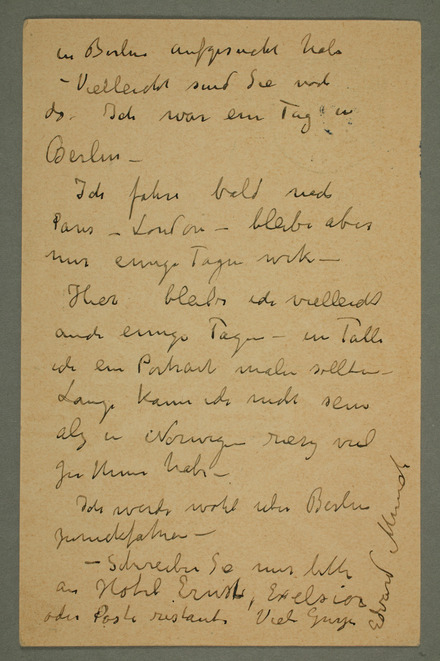 in Berlin aufgesucht habe
– Vielleicht sind Sie noch
da. Ich war ein Tag in
Berlin –
Ich fahre bald nach
Paris – London – bleibe aber
nur einige Tagen
Hier bleibe ich vielleicht
auch einige Tagen – in Falle
ich ein Portrait malen sollte –
Lange kann ich nicht sein
als in Norwegen riesig viel
zu thun habe –
Ich werde wohl über Berlin
zurückfahren –
– Schreiben Sie mir bitte
an Hotel Ernst, Exelsior
oder Poste restante Viele Grüße
Edvard Munch